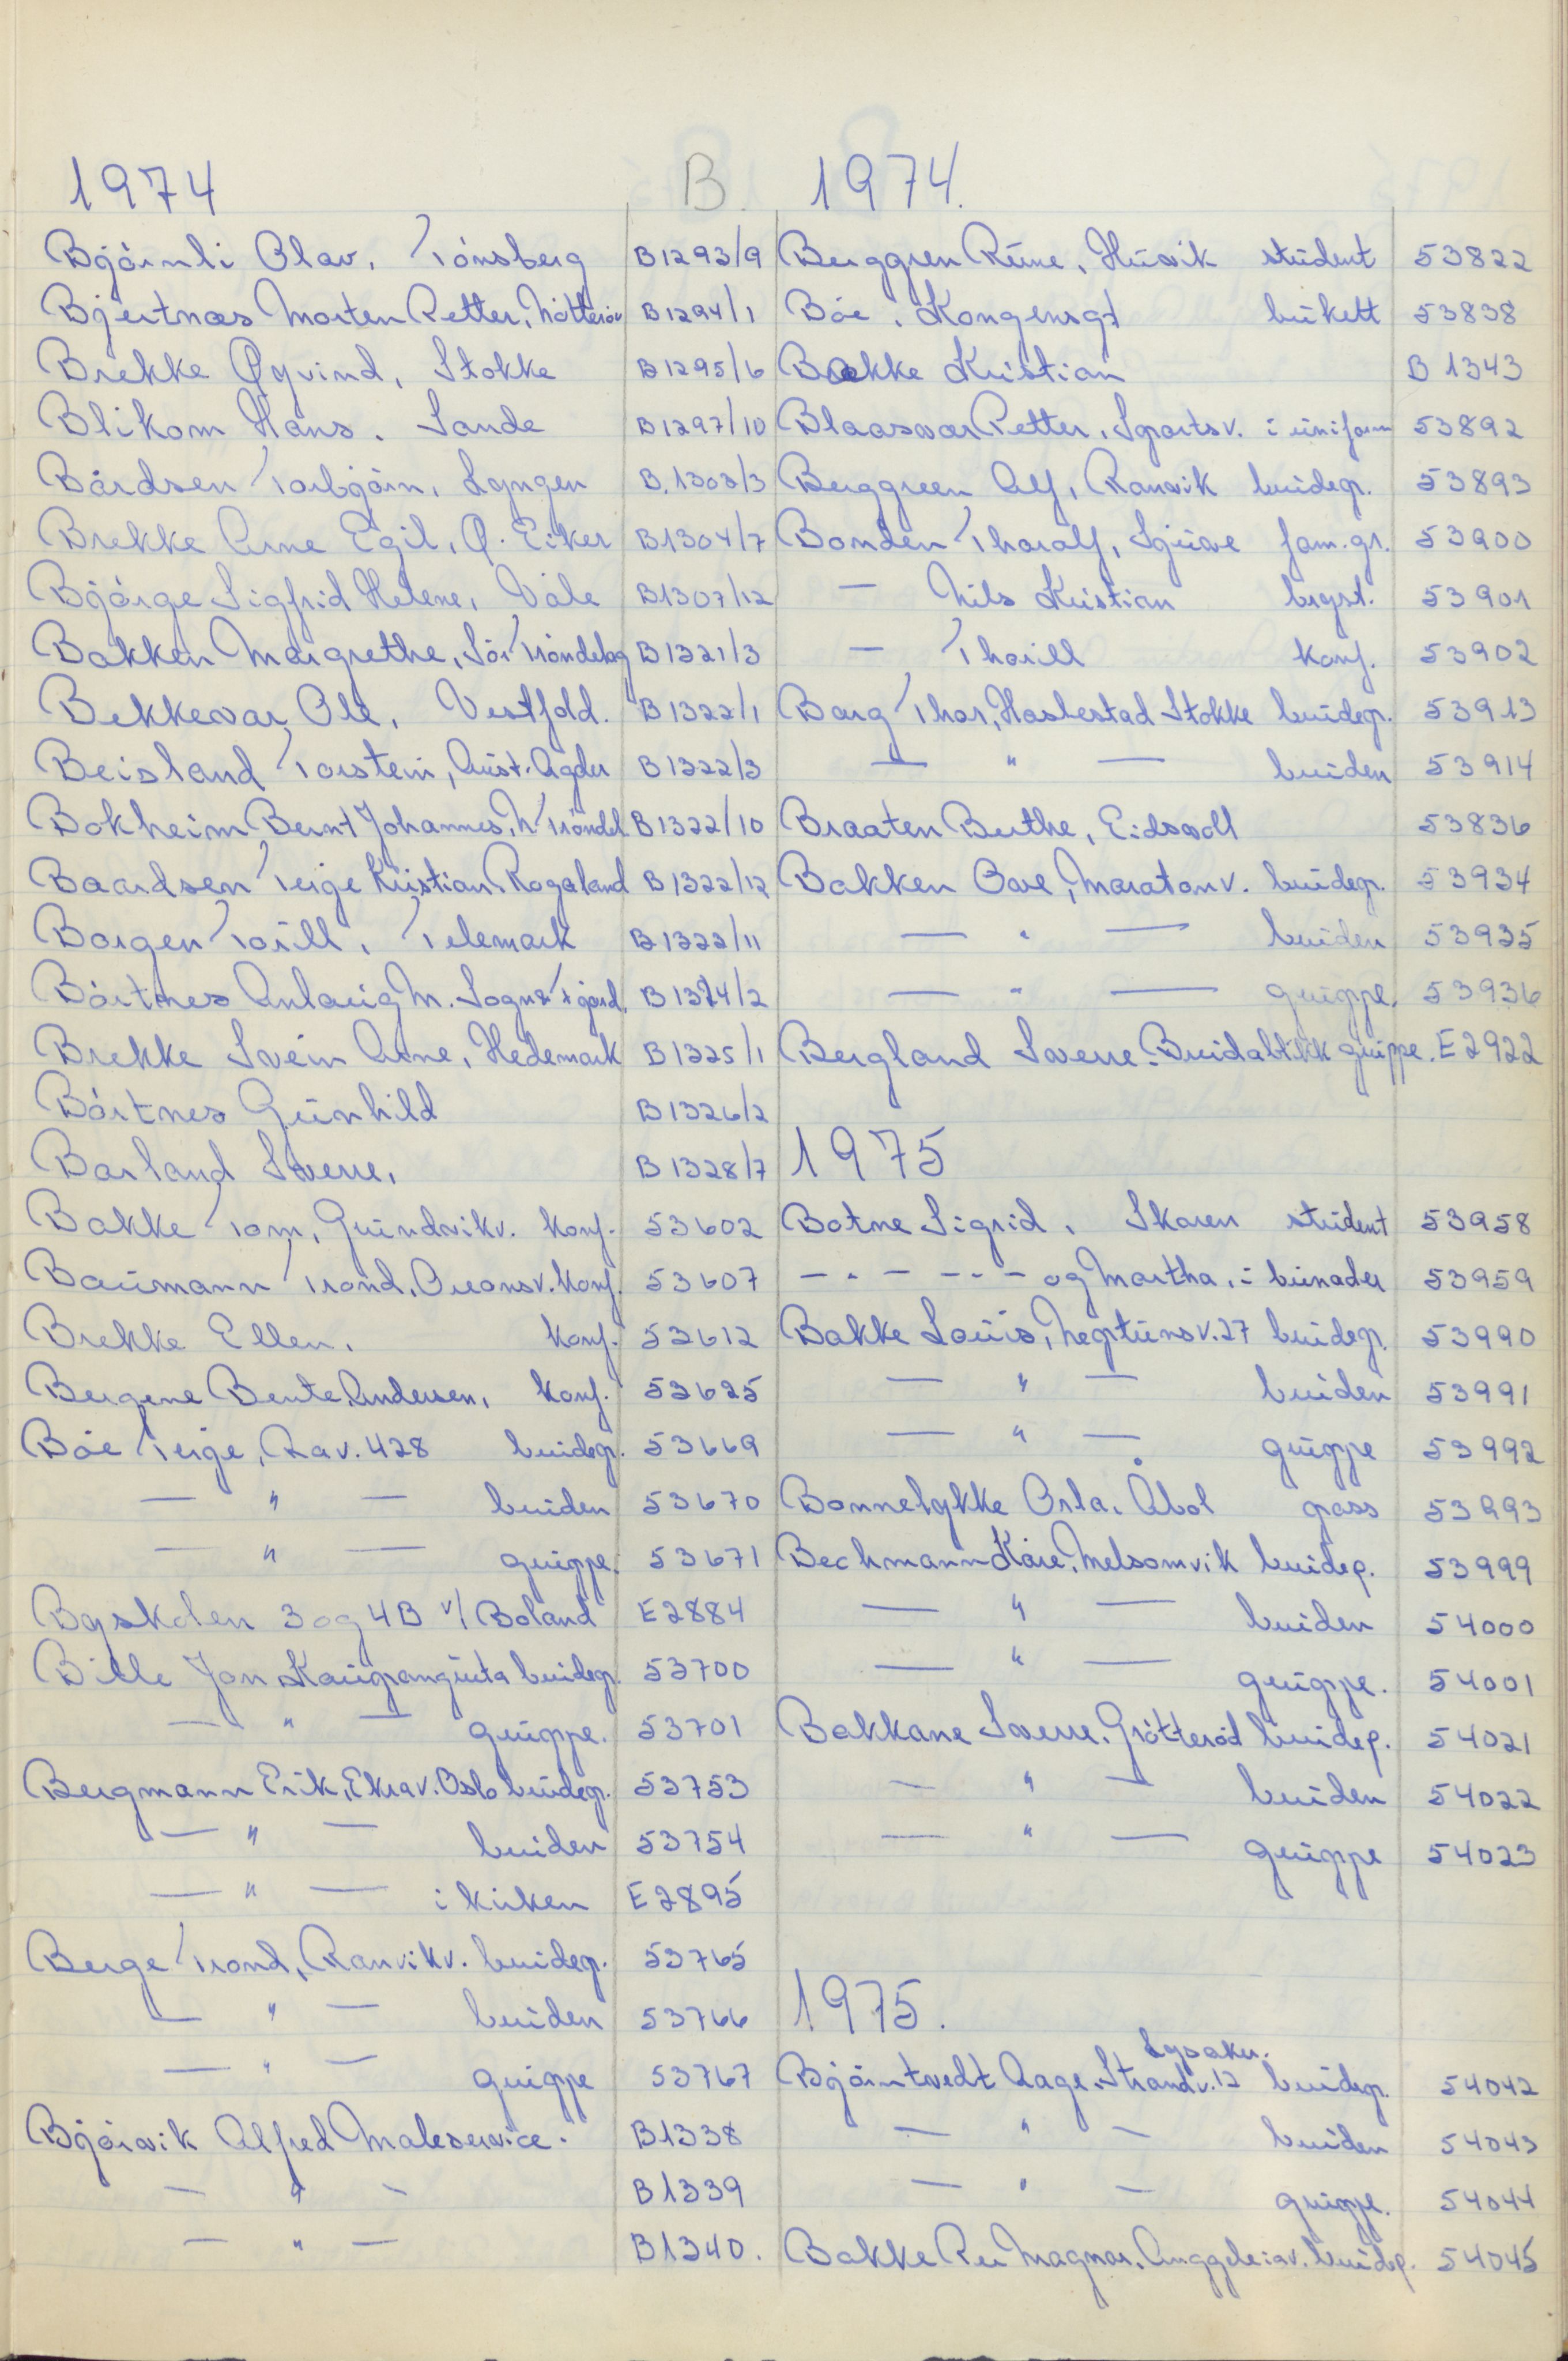 1974
B.
Bjørnli Olav, Tønsberg B1293/9
Bjertnæs Morten Petter, Nøtterøy B1294/1
Brekke Øyvind, Stokke B1295/6
Blikom Hans. Sande B1297/10
Bårdsen Torbjørn, Lyngen B.1303/3
Brekke Arne Egil, Ø. Eiker B1304/7
Bjørge Sigfrid Helene, Våle B1307/12
Bakken Margrethe, Sør Trøndelag B1321/3
Bekkevar Ole, Vestfold. B1322/1
Beisland Torstein, Aust. Agder B1322/3
Bokheim Bernt Johannes, N. Trøndel. B1322/10
Baardsen Terje Kristian Rogaland B1322/12
Borgen Torill, Telemark B1322/11
Børtnes Anlaug M. Sogn & Fjord. B1324/2
Brekke Svein Arne, Hedemark B1325/1
Børtnes Gunhild B1326/2
Barland Sverre, B1328/7
Bakke Tom, Grundvikv. konf. 53602
Baumann Trond, Oreonsv. konf. 53607
Brekke Ellen, konf. 53612
Bergene Bente Andersen, konf. 53625
Bøe Terje, Ra v. 428 brudep. 53669
— " — bruden 53670
— " — gruppe. 53671
Byskolen 3 og 4B v/ Boland E2884
Bille Jan Kaupanggata brudep. 53700
— " — gruppe. 53701
Bergmann Erik, Ekrav. Oslo brudep. 53753
— " — bruden 53754
— " — i kirken E2895
Berge Trond, Ranvikv. brudep. 53765
— " — bruden 53766
— " — gruppe 53767
Bjørvik Alfred Maleservice. B1338
— " — B1339
— " — B1340.
1974.
Berggren Rune, Husvik student 53822
Bøe, Kongensgt bukett 53838
Bakke Kristian B 1343
Blaasvær Petter, Sportsv. i uniform 53892
Berggreen Alf, Ranvik brudep. 53893
Bonden Tharalf, Sjuve fam. gr. 53900
— Nils Kristian bryst. 53901
— Thorill konf. 53902
Borg Thor, Haslestad Stokke brudep. 53913
— " — bruden 53914
Braaten Berthe, Eidsvoll 53836
Bakken Ove, Maratonv. brudep. 53934
— " — bruden 53935
— " — gruppe. 53936
Bergland Sverre. Breidablikk gruppe. E2922
1975
Botne Sigrid, Skoren student 53958
— " — " — og Martha, i bunader 53959
Bakke Louis, Neptunsv. 27 brudep. 53990
— " — bruden 53991
— " — gruppe 53992
Bonnelykke Orla. Åbol pass 53993
Bechmann Kåre, Melsomvik brudep. 53999
— " — bruden 54000
— " — gruppe. 54001
Bakkane Sverre. Grøtterød brudep. 54021
— " — bruden 54022
— " — gruppe 54023
1975.
Lysaker.
Bjørntvedt Aage. Strandv. 12 brudep. 54042
— " — bruden 54043
— " — gruppe. 54044
Bakke Per Magnar. brudep. 54045